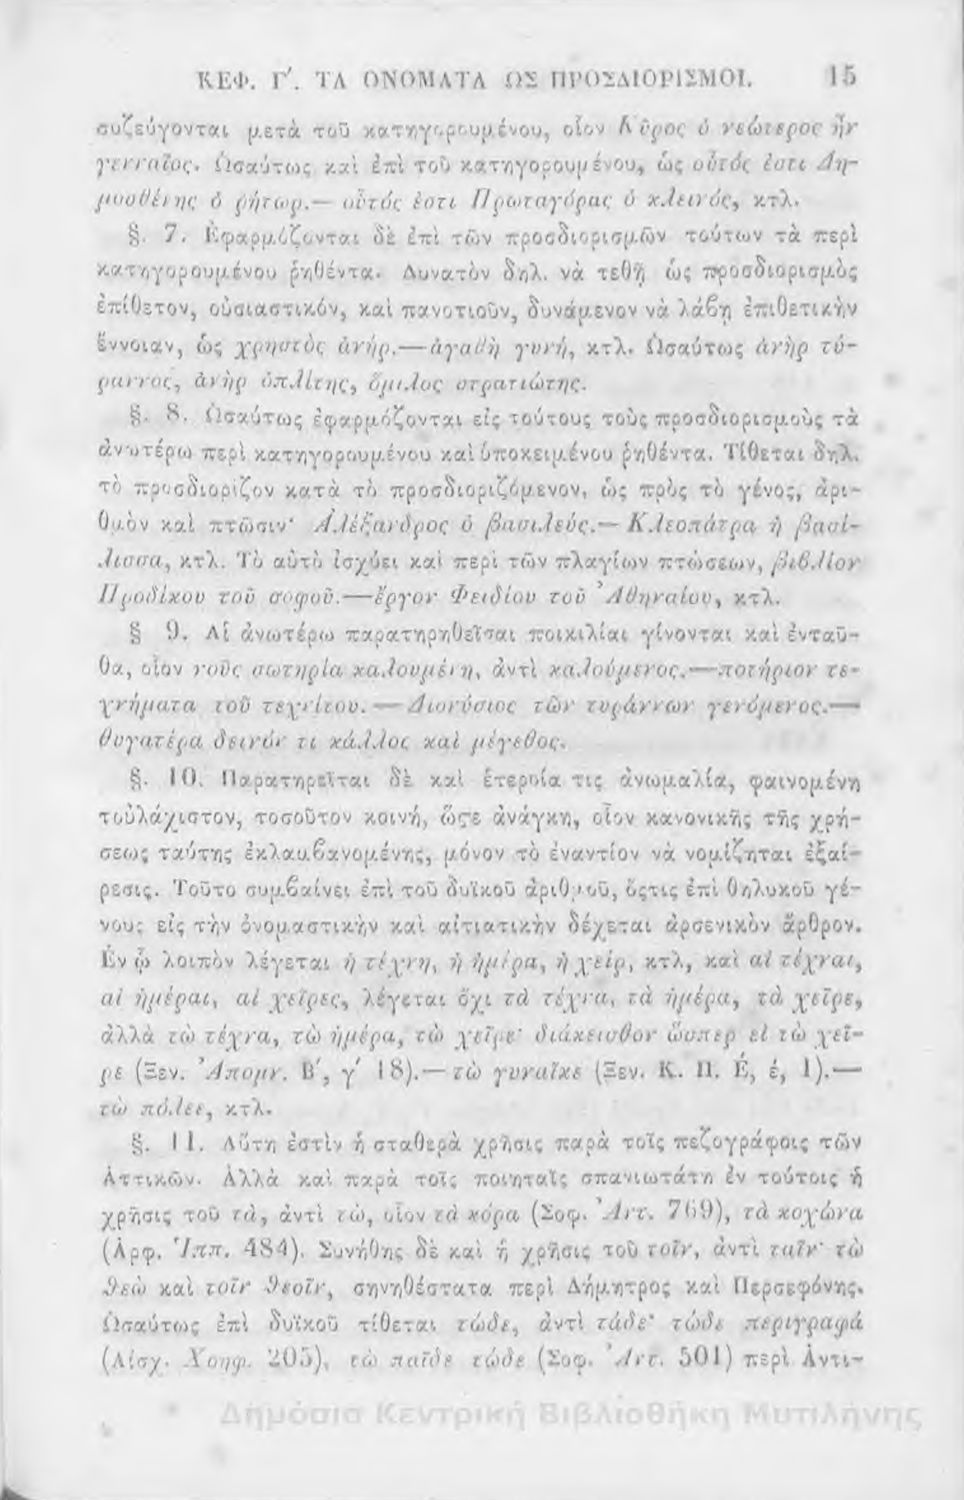 ΚΕΦ. Γ΄. ΤΑ ΟΝΟΜΑΤΑ ΩΣ ΠΡΟΣΔΙΟΡΙΣΜΟΙ. 15
συζεύγονται μετὰ τοῦ κατηγορουμένου, οἷον Κῦρος ὁ νεώτερος ἦν
γενναῖος. Ὡσαύτως καὶ ἐπὶ τοῦ κατηγορουμένου, ὡς οὗτός ἐστι Δη-
μοσθένης ὁ ῥήτωρ.— οὗτός ἐστι Πρωταγόρας ὁ κλεινός, κτλ.
§. 7. Ἐφαρμόζονται δὲ ἐπὶ τῶν προσδιορισμῶν τούτων τὰ περὶ
κατηγορουμένου ῥηθέντα. Δυνατὸν δηλ. νὰ τεθῇ ὡς προσδιορισμὸς
ἐπίθετον, οὐσιαστικόν, καὶ πανοτιοῦν, δυνάμενον νὰ λάβῃ ἐπιθετικὴν
ἔννοιαν, ὡς χρηστὸς ἀνήρ.—ἀγαθὴ γυνή, κτλ. Ὡσαύτως ἀνὴρ τύ-
ραννος, ἀνὴρ ὁπλίτης, ὅμιλος στρατιώτης.
§. 8. Ὡσαύτως ἐφαρμόζονται εἰς τούτους τοὺς προσδιορισμοὺς τὰ
ἀνωτέρω περὶ κατηγορουμένου καὶ ὑποκειμένου ῥηθέντα. Τίθεται δηλ.
τὸ προσδιορίζον κατὰ τὸ προσδιοριζόμενον, ὡς πρὸς τὸ γένος, ἀρι-
θμὸν καὶ πτῶσιν· Ἀλέξανδρος ὁ βασιλεύς.— Κλεοπάτρα ἡ βασί-
λισσα, κτλ. Τὸ αὐτὸ ἰσχύει καὶ περὶ τῶν πλαγίων πτώσεων, βιβλίον
Προδίκου τοῦ σοφοῦ.—ἔργον Φειδίου τοῦ Ἀθηναίου, κτλ.
§ 9. Αἱ ἀνωτέρω παρατηρηθεῖσαι ποικιλίαι γίνονται καὶ ἐνταῦ-
θα, οἷον νοῦς σωτηρία καλουμένη, ἀντὶ καλούμενος.—ποτήριον τε-
χνήματα τοῦ τεχνίτου.— Διονύσιος τῶν τυράννων γενόμενος.—
θυγατέρα δεινόν τι κάλλος καὶ μέγεθος.
§. 10. Παρατηρεῖται δὲ καὶ ἑτεροία τις ἀνωμαλία, φαινομένη
τοὐλάχιστον, τοσοῦτον κοινή, ὥςε ἀνάγκη, οἷον κανονικῆς τῆς χρή-
σεως ταύτης ἐκλαμβανομένης, μόνον τὸ ἐναντίον νὰ νομίζηται ἐξαί-
ρεσις. Τοῦτο συμβαίνει ἐπὶ τοῦ δυϊκοῦ ἀριθμοῦ, ὅςτις ἐπὶ θηλυκοῦ γέ-
νους εἰς τὴν ὀνομαστικὴν καὶ αἰτιατικὴν δέχεται ἀρσενικὸν ἄρθρον.
Ἐν ᾧ λοιπὸν λέγεται ἡ τέχνη, ἡ ἡμέρα, ἡ χείρ, κτλ, καὶ αἱ τέχναι,
αἱ ἡμέραι, αἱ χεῖρες, λέγεται ὄχι τὰ τέχνα, τὰ ἡμέρα, τὰ χεῖρε,
ἀλλὰ τὼ τέχνα, τὼ ἡμέρα, τὼ χεῖρε· διάκεισθον ὥσπερ εἰ τὼ χεῖ-
ρε (Ξεν. Ἀπομν. Β΄, γ΄ 18).— τὼ γυναῖκε (Ξεν. Κ. Π. Ε΄, έ, 1).—
τὼ πόλεε, κτλ.
§. 11. Αὕτη ἐστὶν ἡ σταθερὰ χρῆσις παρὰ τοῖς πεζογράφοις τῶν
Ἀττικῶν. Ἀλλὰ καὶ παρὰ τοῖς ποιηταῖς σπανιωτάτη ἐν τούτοις ἡ
χρῆσις τοῦ τά, ἀντὶ τώ, οἷον τὰ κόρα (Σοφ. Ἀντ. 769), τὰ κοχώνα
(Ἀρφ. Ἱππ. 484). Συνήθης δὲ καὶ ἡ χρῆσις τοῦ τοῖν, ἀντὶ ταῖν· τὼ
θεὼ καὶ τοῖν θεοῖν, σηνηθέστατα περὶ Δήμητρος καὶ Περσεφόνης.
Ὡσαύτως ἐπὶ δυϊκοῦ τίθεται τώδε, ἀντὶ τάδε· τώδε περιγραφά
(Αἰσχ. Χοηφ. 205), τὼ παῖδε τώδε (Σοφ. Ἀντ. 501) περὶ Ἀντι-
Δημόσια Κεντρική Βιβλιοθήκη Μυτιλήνης